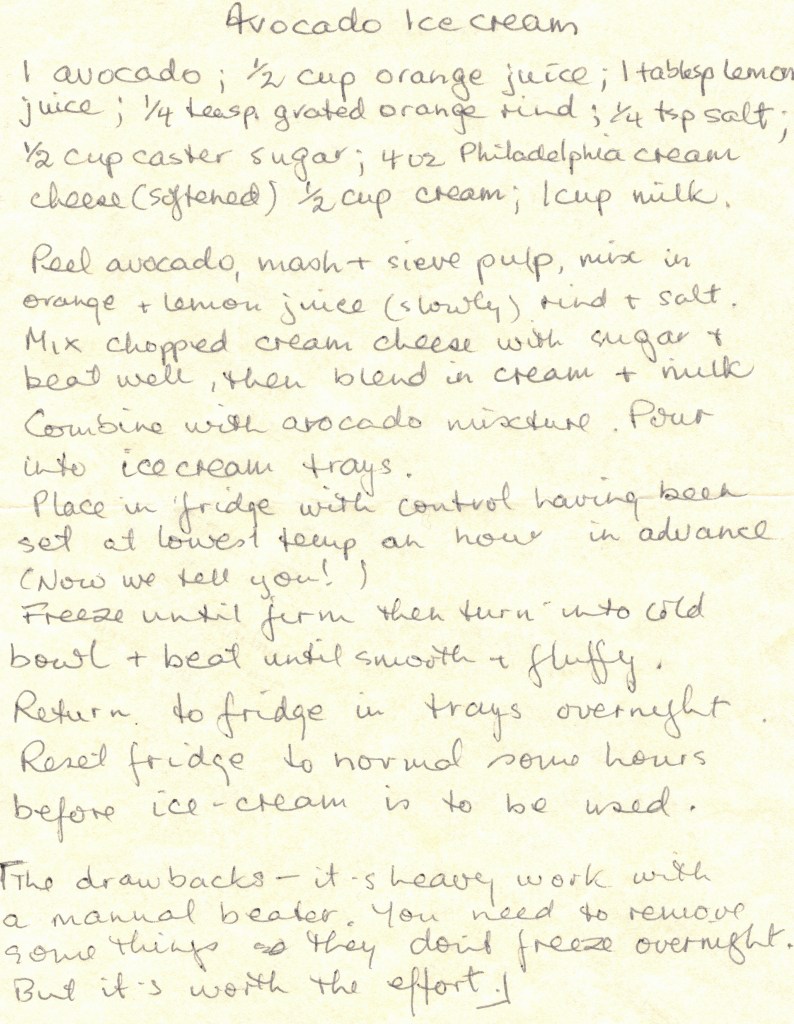 Avocado Ice cream
1 avocado; ½ cup orange juice; 1 tablesp lemon
juice; ¼ teasp. grated orange rind; ¼ tsp salt;
½ cup caster sugar; 4oz Philadelphia cream
cheese (softened) ½ cup cream; 1 cup milk.
Peel avocado, mash + sieve pulp, mix in
orange + lemon juice (slowly) rind + salt.
Mix chopped cream cheese with sugar +
beat well, then blend in cream + milk
Combine with avocado mixture. Pour
into icecream trays.
Place in fridge with control having been
set at lowest temp an hour in advance
(Now we tell you!)
Freeze until firm then turn into cold
bowl + beat until smooth + fluffy.
Return to fridge in trays overnight.
Reset fridge to normal some hours
before ice-cream is to be used.
[The drawbacks - it's heavy work with
a manual beater. You need to remove
some things so they don't freeze overnight.
But it's worth the effort.]